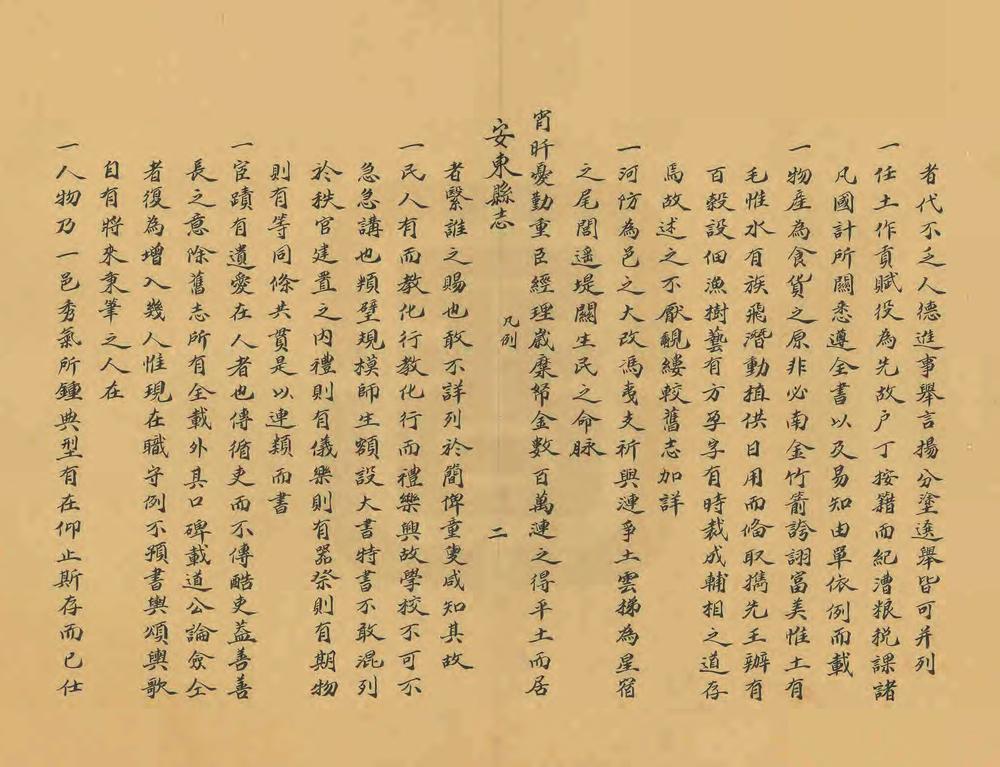 者代不乏人德進事舉言揚分塗選舉皆可并列
一任土作貢賦役為先故户丁按籍而紀漕粮税課諸
凡國計所關悉遵全書以及易知由單依例而載
一物產為食貨之原非必南金竹箭誇詡富美惟土有
毛惟水有族飛潛動植供日用而偹取擕先王辦有
百穀設佃漁樹藝有方孕孚有時裁成輔相之道存
焉故述之不厭覼縷較舊志加詳
一河防為邑之大政馮夷支祈與漣爭土雲梯為星宿
之尾閭遥堤關生民之命脉
宵旰憂勤重臣經理歲縻帑金數百萬漣之得平土而居
安東縣志
凡例
二
者緊誰之賜也敢不詳列於簡俾童叟咸知其故
一民人有而教化行教化行而禮樂興故學校不可不
急急講也頖璧規模師生額設大書特書不敢混列
於秩官建置之内禮則有儀樂則有器祭則有期物
則有等同條共貫是以連類而書
一宦蹟有遺愛在人者也傳循吏而不傳酷吏葢善善
長之意除舊志所有全載外其口碑載道公論僉仝
者復為增入幾人惟現在職守例不預書輿頌輿歌
自有將來秉筆之人在
一人物乃一邑秀氣所鍾典型有在仰止斯存而已仕